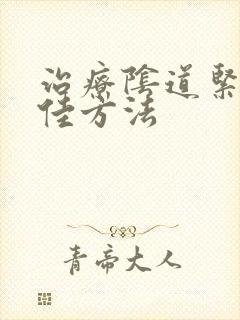 治療陰道緊
佳方法
青帝大人